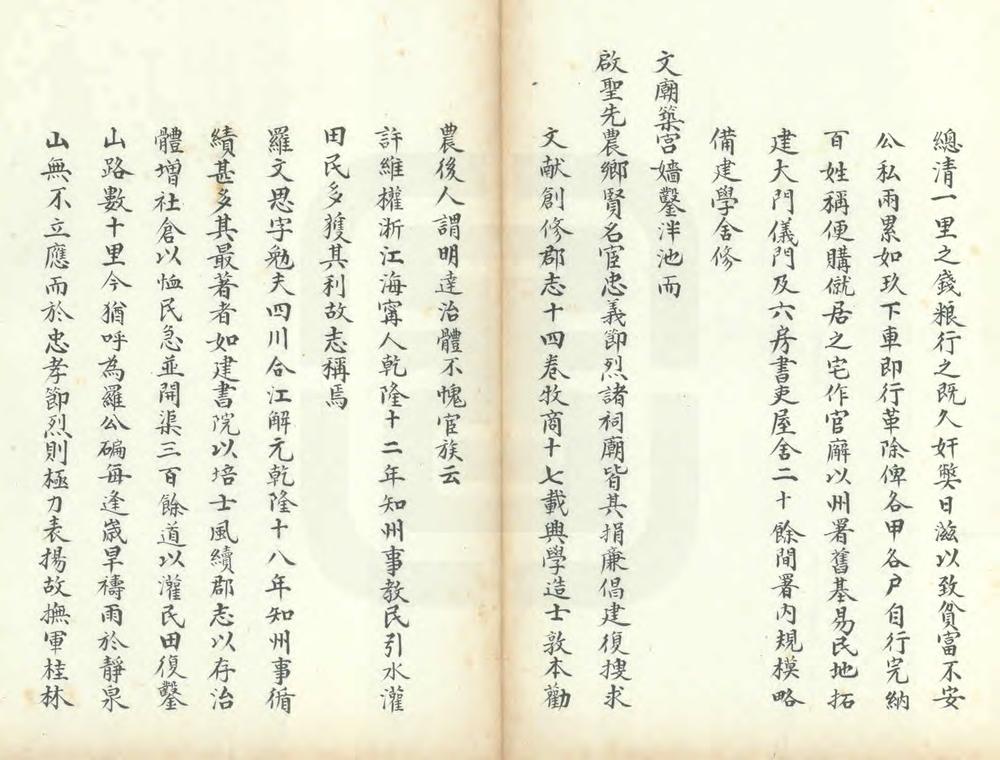 總清一里之錢粮行之既久奸獘日滋以致貧富不安
公私兩累如玖下車即行革除俾各甲各户自行完納
百姓稱便購僦居之宅作官廨以州署舊基易民地拓
建大門儀門及六房書吏屋舍二十餘間署内規模略
備建學舍修
文廟築宮嬙鑿泮池而
啟聖先農鄉賢名宦忠義節烈諸祠廟皆其捐廉倡建復搜求
文献創修郡志十四卷牧商十七載興學造士敦本勸
農後人謂明達治體不愧官族云
許維權浙江海寗人乾隆十二年知州事教民引水灌
田民多獲其利故志稱焉
羅文思字勉夫四川合江解元乾隆十八年知州事循
績甚多其最著者如建書院以培士風續郡志以存治
體增社倉以恤民急並開渠三百餘道以灌民田復鑿
山路數十里今猶呼為羅公碥每逢歲旱禱雨於靜泉
山無不立應而於忠孝節烈則極力表揚故撫軍桂林